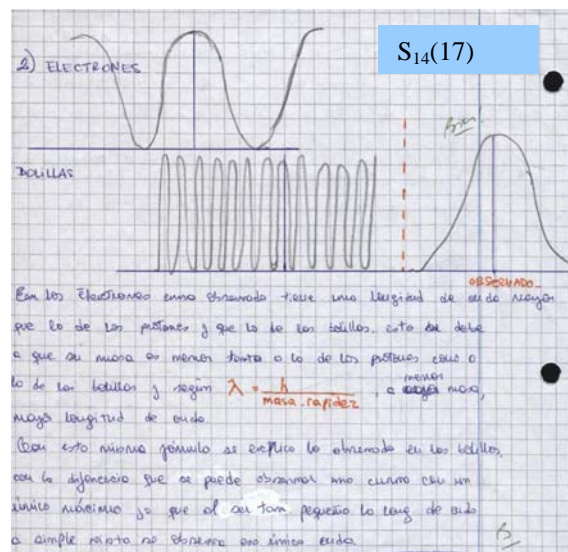 S14(17)
2) ELECTRONES
Bien
BOLILLAS
OBSERVADO
Con los Electrones como observado tiene una longitud de onda mayor
que la de los protones y que la de las bolillas. esto se debe
a que su masa es menor tanto a la de los protones como a
la de las bolillas y según λ = h / masa . rapidez , a menor masa,
mayor longitud de onda.
Con esta misma fórmula se explica lo observado en las bolillas,
con la diferencia que se puede observar una curva con un
único máximo ya que al ser tan pequeña la long de onda
a simple vista se observa una única onda.
B